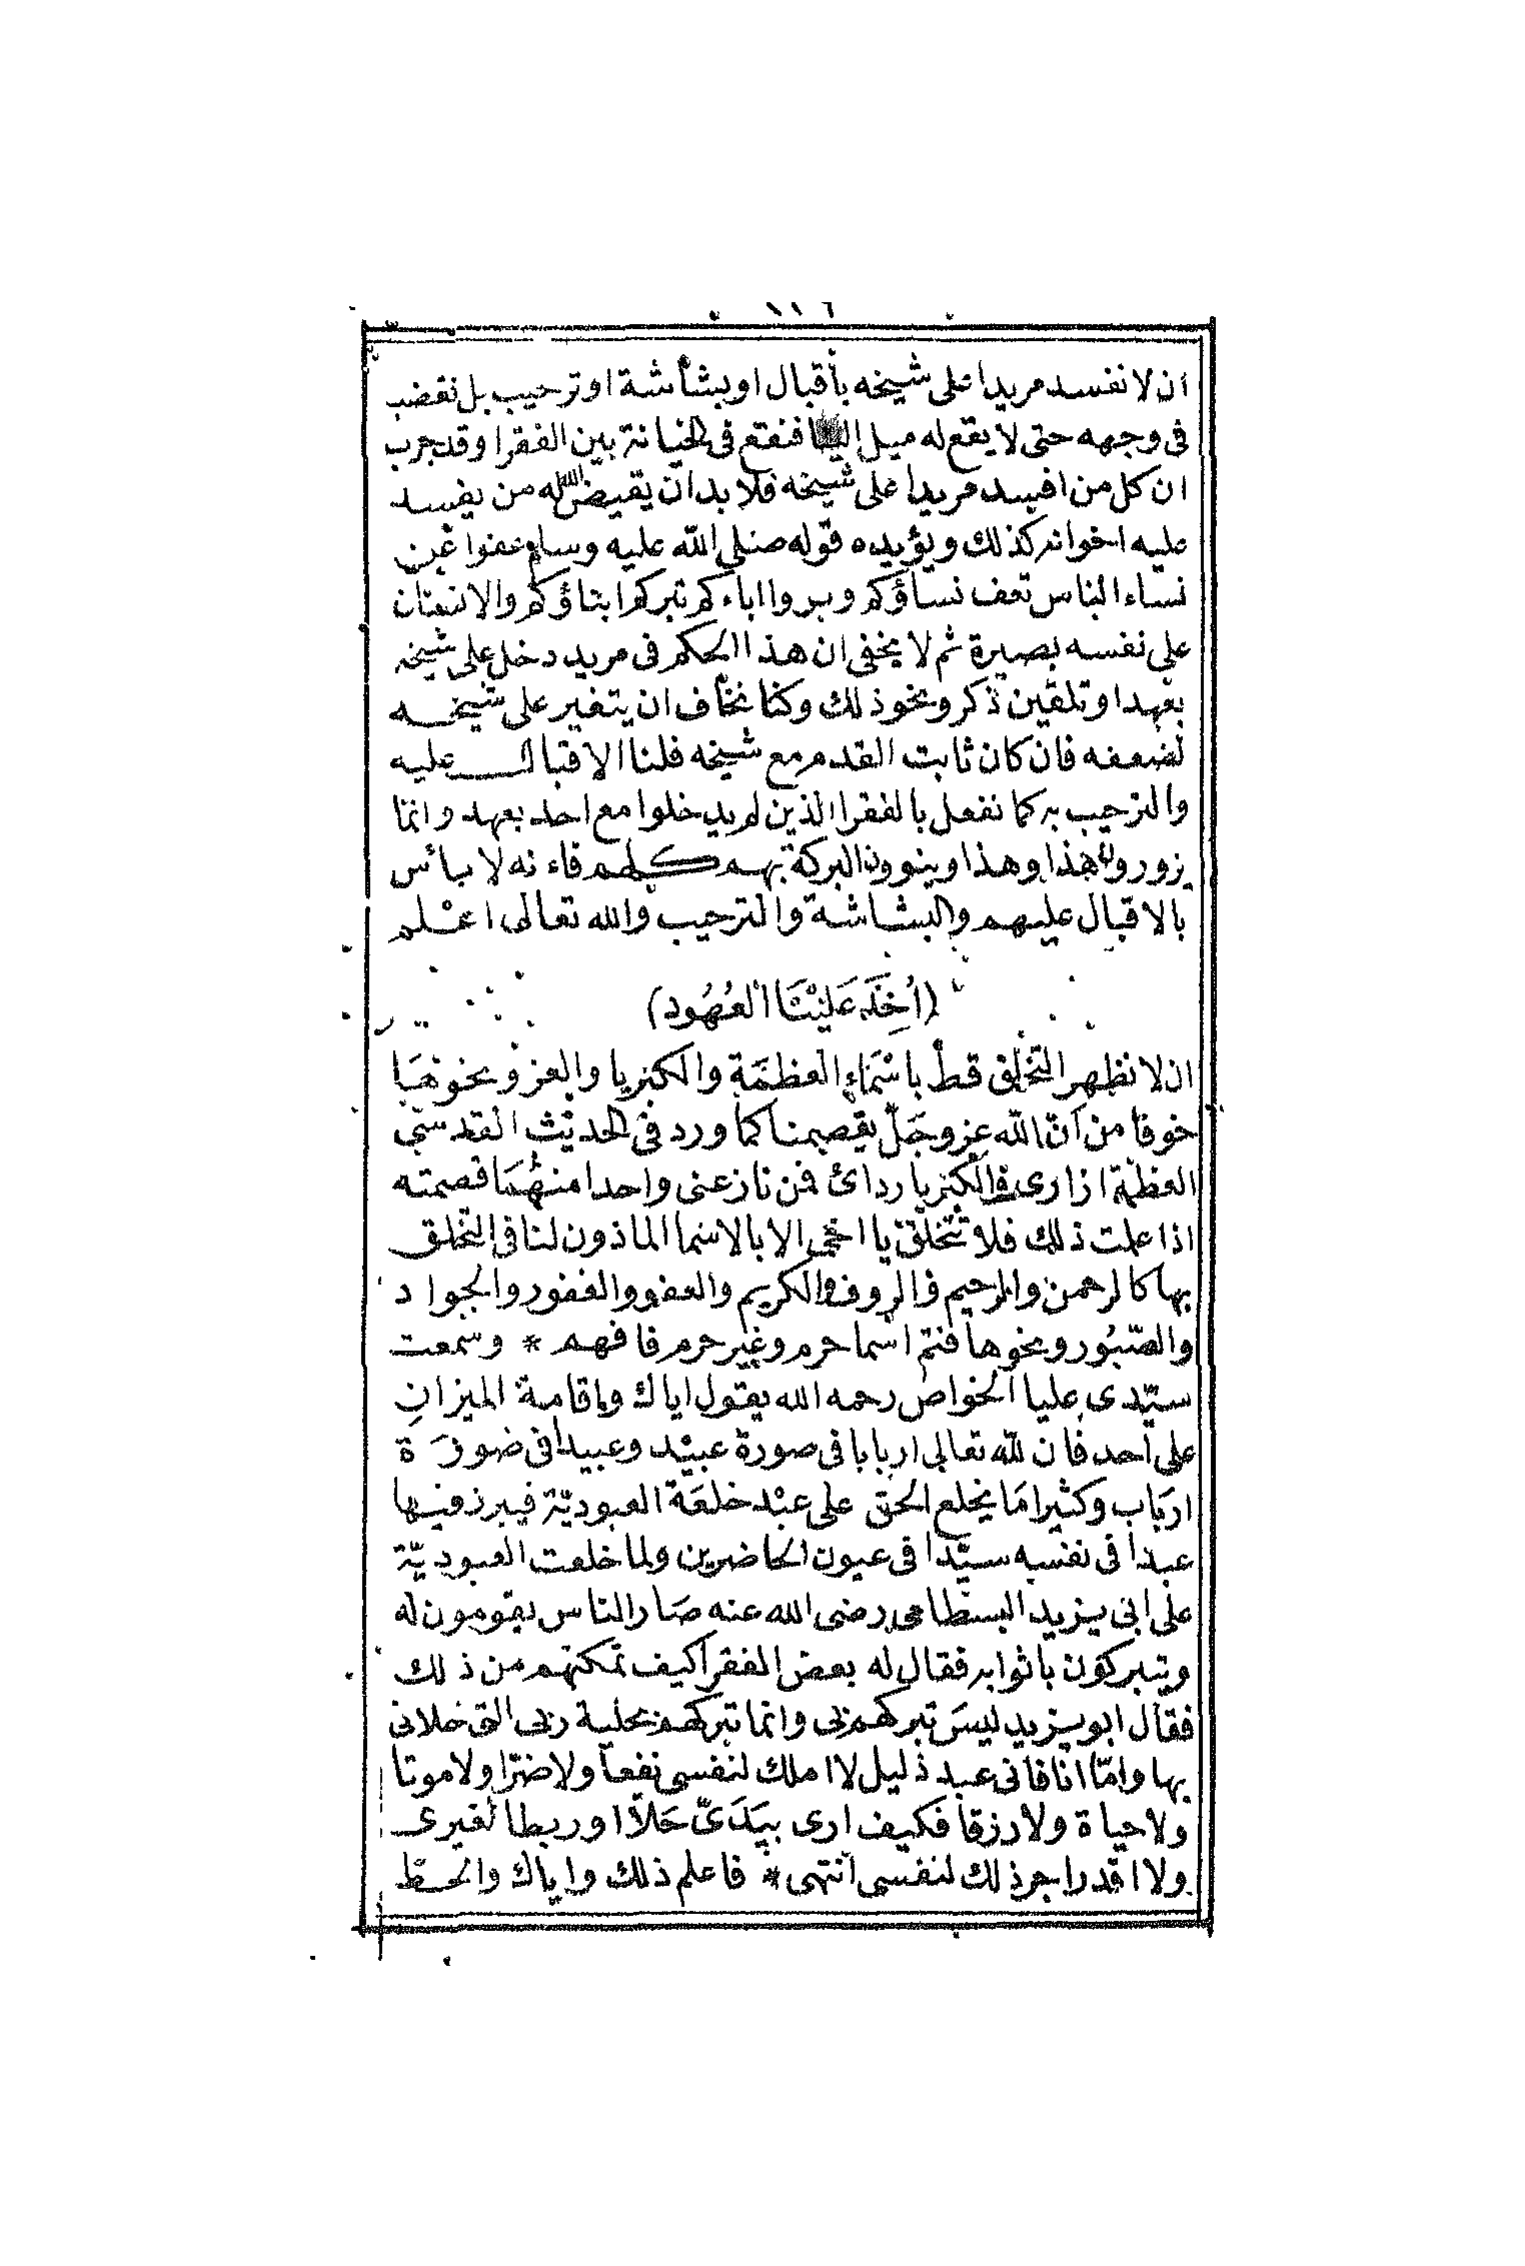 ١١٦
ان لا نفسد مريدا على شيخه بأقبال او بشأشة او ترحيب بل نغضب
فى وجهه حتى لا يقع له ميل الينا فنقع فى الخيانة بين الفقرا وقد جرب
ان كل من افسد مريدا على شيخه فلا بد ان يقيض الله له من يفسد
عليه اخوانه كذلك ويؤيده قوله صلى الله عليه وسلم عفوا عن
نساء الناس تعف نساؤكم وبروا اباءكم تبركم ابناؤكم والانسان
على نفسه بصيرة ثم لا يخفى ان هذا الحكم فى مريد دخل على شيخه
بعهد او تلقين ذكر ونحو ذلك وكنا نخاف ان يتغير على شيخه
لضعفه فان كان ثابت القدم مع شيخه فلنا الاقبال عليه
والترحيب به كما نفعل بالفقرا الذين لم يدخلوا مع احد بعهد وانما
يزورون هذا وهذا وينوون البركة بهم كلهم فاءنه لا بأس
بالاقبال عليهم والبشاشة والترحيب والله تعالى اعلم
(أُخِذَ عَلَيْنَا العُهُود)
ان لا نظهر التخلق قط باسْمَاءِ العظمَة والكبريا والعز ونحوهَا
خوفا من أنّ الله عز وجَلّ يقصمنا كما ورد فى الحديث القدسى
العظمة ازارى والكبريا ردائ فمن نازعنى واحدا منهُمَا قصمته
اذا علمت ذلك فلا تتخلق يا اخى الا بالاسما الماذون لنا فى التخلق
بها كالرحمن والرحيم والروف والكريم والعفو والغفور والجواد
والصّبُور ونحوها فثم اسما حرم وغير حرم فافهم * وسمعت
سيّدى عليا الخواص رحمه الله يقول اياك واقامة الميزان
على أحد فان لله تعالى اربابا فى صورة عبيْد وعبيدا فى صورَة
اربَاب وكثيرا مَا يخلع الحق على عبْد خلعَة العبوديّة فيبرز فيها
عبدا فى نفسه سيّدا فى عيون الحاضرين ولما خلعت العبوديّة
على ابى يزيد البسطامى رضى الله عنه صَار الناس يقومون له
ويتبركون باثوابه فقال له بعض الفقرا كيف تمكنهم من ذلك
فقال ابو يزيد ليسَ تبركهم بى وانما تبركهم بحلية ربى التى حلانى
بها وامّا انا فانى عبد ذليل لا املك لنفسى نفعا ولا ضرّا ولا موتا
ولا حياة ولا رزقا فكيف ارى بيَدَىّ حَلاّ او ربطا لغيرى
ولا اقدر اجر ذلك لنفسى انتهى * فاعلم ذلك واياك والحطّ